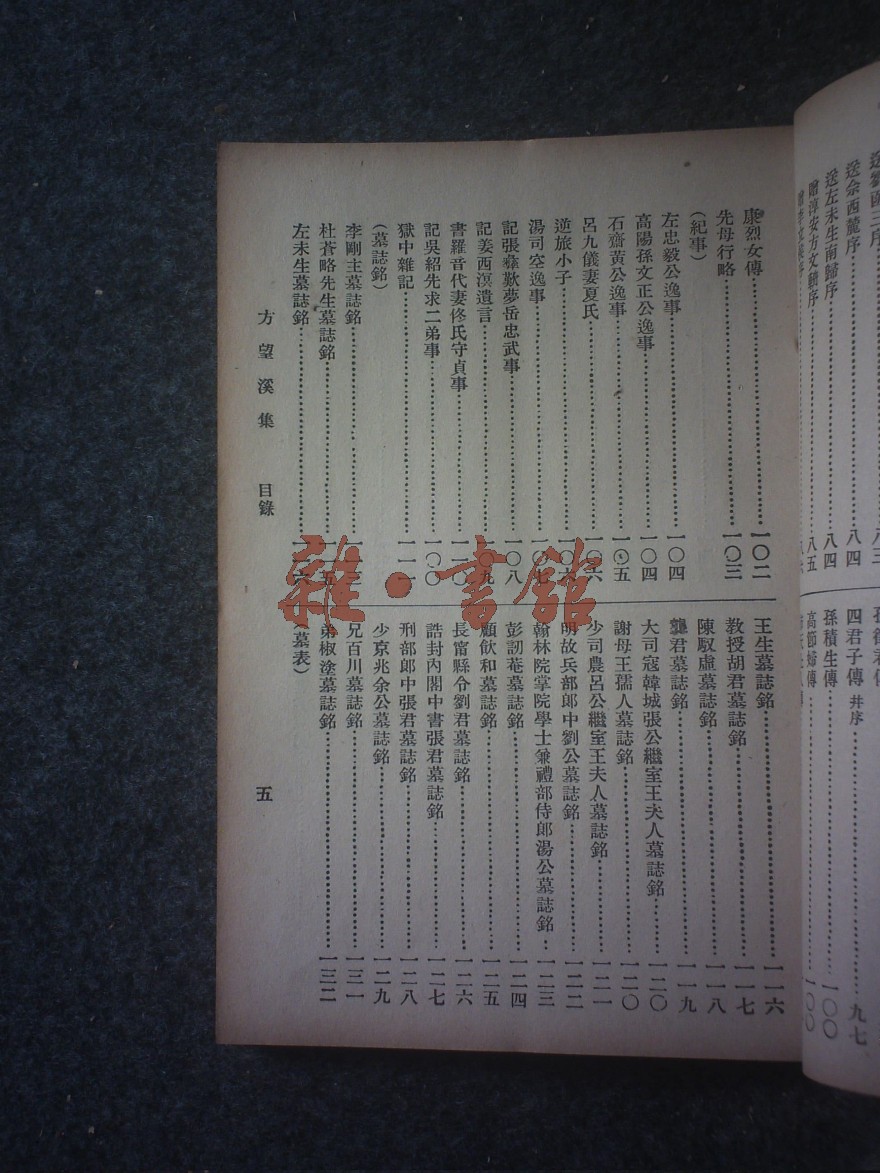 送佘西麓序……八四
送左未生南歸序……八四
贈淳安方文輈序……八五
四君子傳 并序……九七
孫積生傳……一〇〇
高節婦傳……一〇〇
康烈女傳……一〇二
先母行略……一〇三
（紀事）
左忠毅公逸事……一〇四
高陽孫文正公逸事……一〇四
石齋黃公逸事……一〇五
呂九儀妻夏氏……一〇六
逆旅小子……一〇六
湯司空逸事……一〇七
記張彝歎夢岳忠武事……一〇八
記姜西溟遺言……一〇九
書羅音代妻佟氏守貞事……一一〇
記吳紹先求二弟事……一〇〇
獄中雜記……一一一
（墓誌銘）
李剛主墓誌銘……一一三
杜蒼略先生墓誌銘……一一五
左未生墓誌銘……一一六
王生墓誌銘……一一六
教授胡君墓誌銘……一一七
陳馭虛墓誌銘……一一八
龔君墓誌銘……一一九
大司寇韓城張公繼室王夫人墓誌銘……一二〇
謝母王孺人墓誌銘……一二〇
少司農呂公繼室王夫人墓誌銘……一二一
明故兵部郎中劉公墓誌銘……一二二
翰林院掌院學士兼禮部侍郎湯公墓誌銘……一二三
彭訒菴墓誌銘……一二四
顧飲和墓誌銘……一二五
長甯縣令劉君墓誌銘……一二六
誥封內閣中書張君墓誌銘……一二七
刑部郎中張君墓誌銘……一二八
少京兆余公墓誌銘……一二九
兄百川墓誌銘……一三一
弟椒塗墓誌銘……一三二
（墓表）
方望溪集 目錄 五
雜·書館